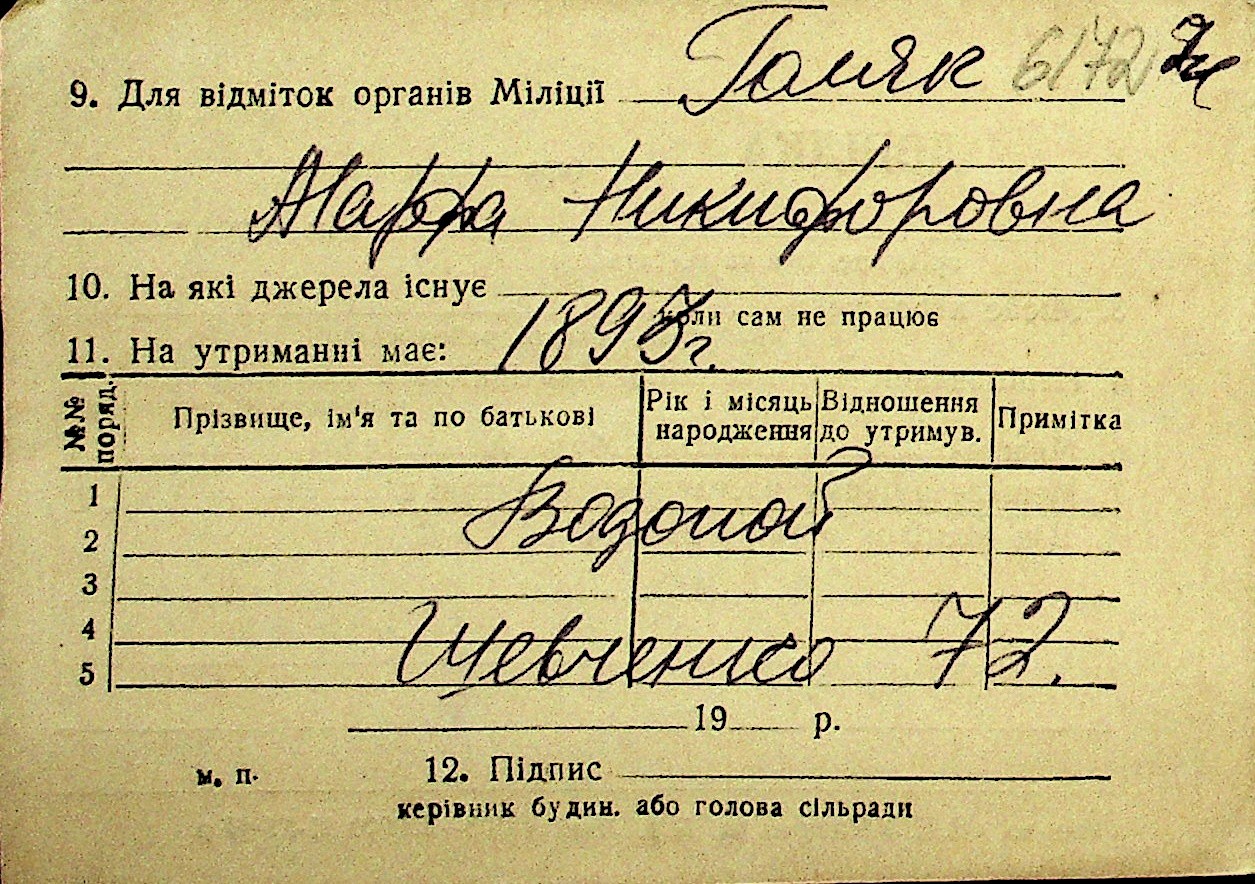 9. Для відміток органів Міліції Гамяк 6172
Марфа Никифоровна
10. На які джерела існує
коли сам не працює
11. На утриманні має: 1893г.
№№ поряд. Прізвище, ім'я та по батькові Рік і місяць народження Відношення до утримув. Примітка
1
Водопой
2
3
4
Шевченко 72.
5
19 р.
м. п. 12. Підпис
керівник будин. або голова сільради